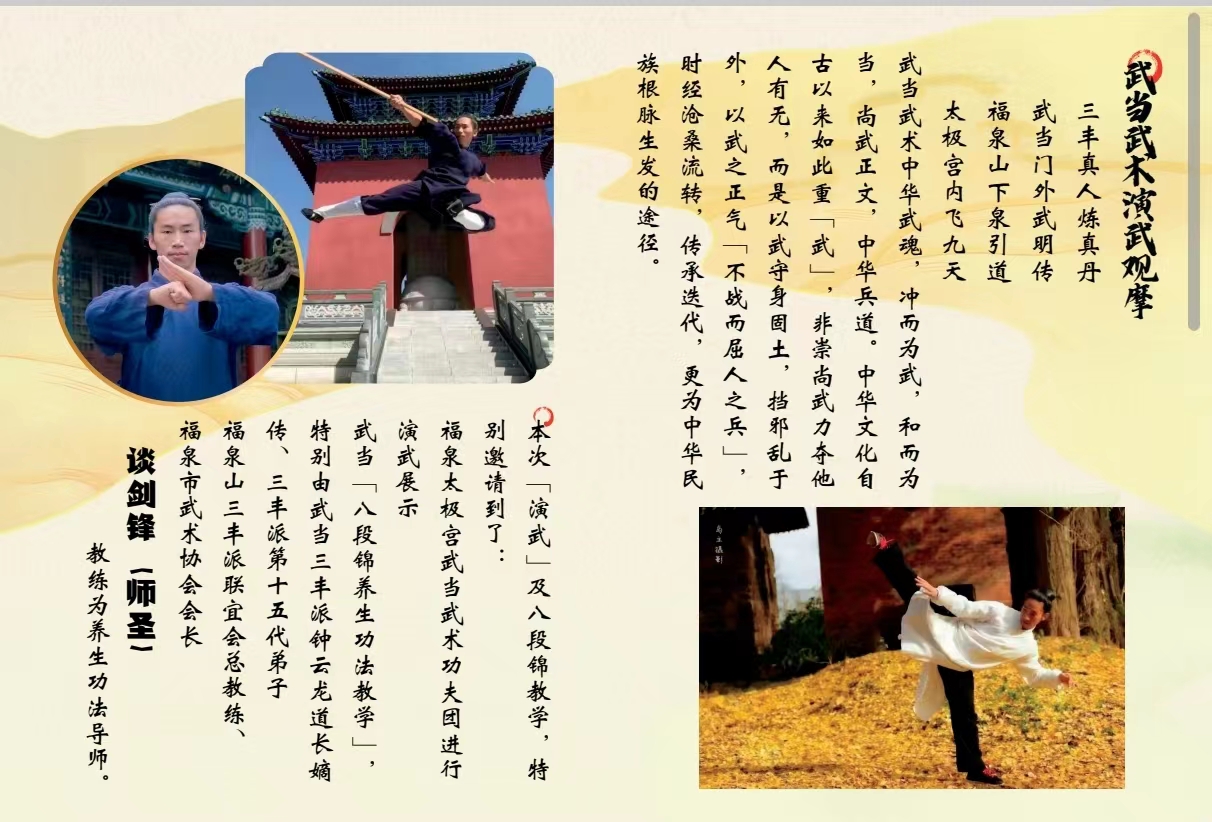 武当武术演武观摩
三丰真人炼真丹
武当门外武明传
福泉山下泉引道
太极宫内飞九天
武当武术中华武魂，冲而为武，和而为
当，尚武正文，中华兵道。中华文化自
古以来如此重「武」，非崇尚武力夺他
人有无，而是以武守身固土，挡邪乱于
外，以武之正气「不战而屈人之兵」，
时经沧桑流转，传承迭代，更为中华民
族根脉生发的途径。
岛主摄影
本次「演武」及八段锦教学，特
别邀请到了：
福泉太极宫武当武术功夫团进行
演武展示
武当「八段锦养生功法教学」，
特别由武当三丰派钟云龙道长嫡
传、三丰派第十五代弟子
福泉山三丰派联宜会总教练、
福泉市武术协会会长
谈剑锋（师圣）
教练为养生功法导师。